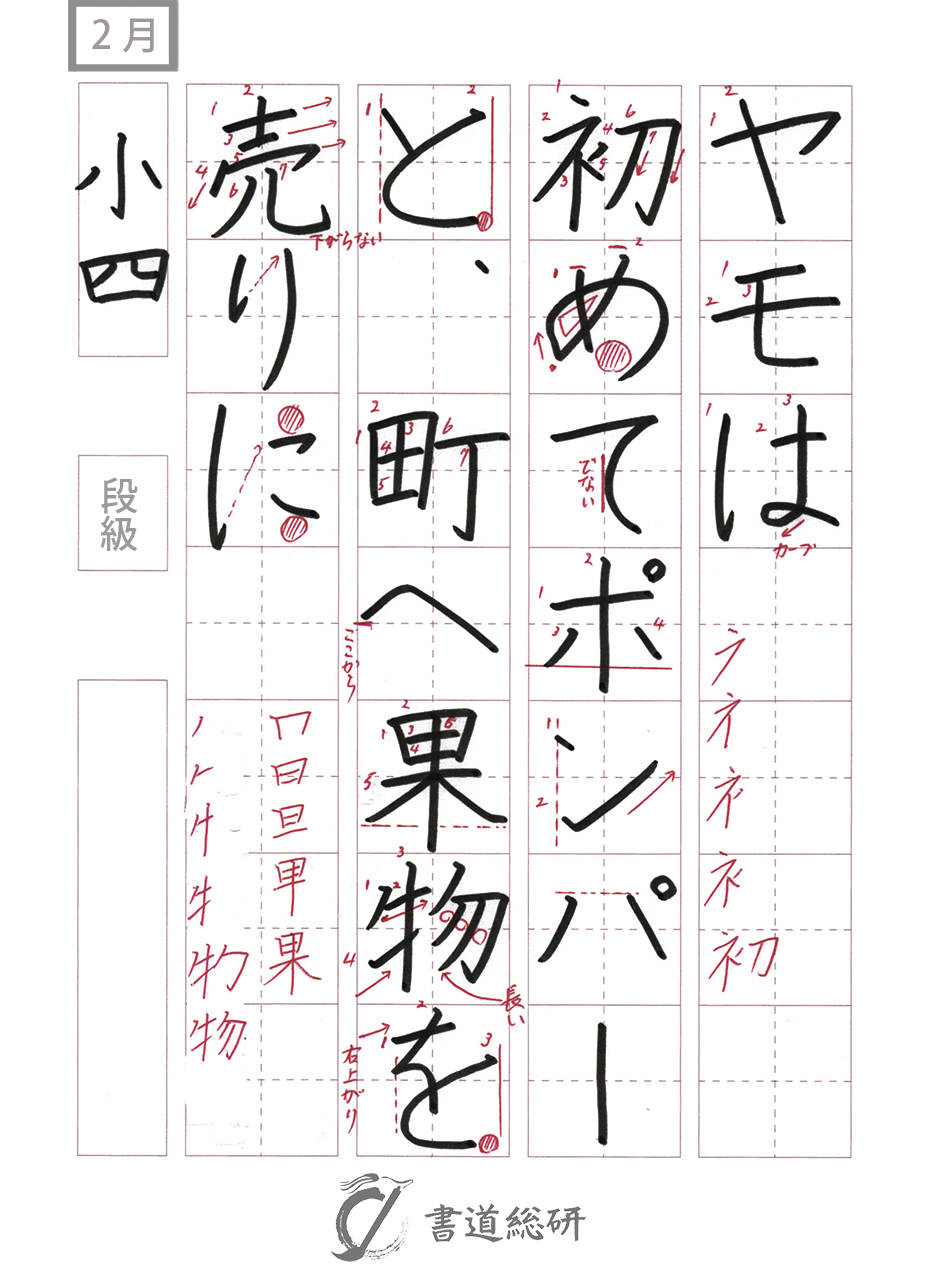 2月
ヤモは
カーブ
ラネネネ初
初めてポンパー
でない
と、町へ果物を
ここから
長い
右上がり
売りに
下がらない
冂日旦甲果
丿𠂉牛牜物物
小四
段級
書道総研